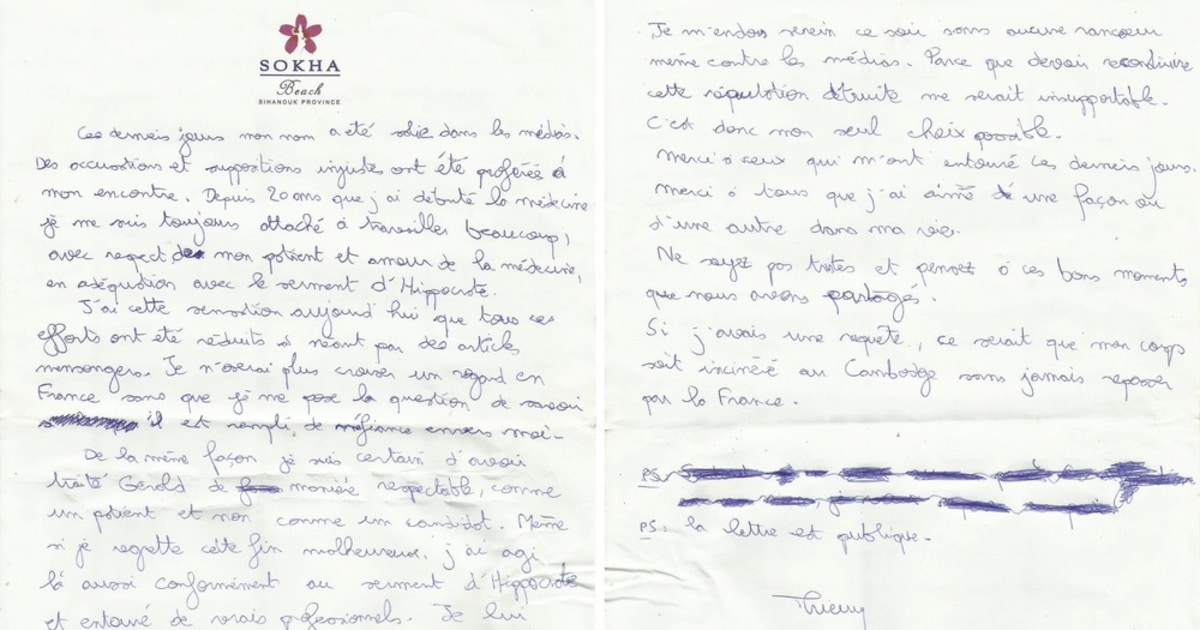 SOKHA
Beach
SIHANOUK PROVINCE
Ces derniers jours mon nom a été sali dans les médias.
Des accusations et suppositions injustes ont été proférées à
mon encontre. Depuis 20 ans que j'ai débuté la médecine
je me suis toujours attaché à travailler beaucoup,
avec respect de mon patient et amour de la médecine,
en adéquation avec le serment d'Hippocrate.
J'ai cette sensation aujourd'hui que tous ces
efforts ont été réduits à néant par des articles
mensongers. Je n'oserai plus croiser un regard en
France sans que je me pose la question de savoir
il est rempli de méfiance envers moi.
De la même façon je suis certain d'avoir
traité Gérald de manière respectable, comme
un patient et non comme un candidat. Même
si je regrette cette fin malheureuse, j'ai agi
là aussi conformément au serment d'Hippocrate
et entouré de vrais professionnels. Je lui
Je m'endors serein ce soir sans aucune rancoeur
même contre les médias. Parce que devoir reconstruire
cette réputation détruite me serait insupportable.
C'est donc mon seul choix possible.
Merci à ceux qui m'ont entouré ces derniers jours.
Merci à tous que j'ai aimé d'une façon ou
d'une autre dans ma vie.
Ne soyez pas tristes et pensez à ces bons moments
que nous avons partagés.
Si j'avais une requête, ce serait que mon corps
soit incinéré au Cambodge sans jamais repasser
par la France.
PS:
PS: la lettre est publique.
Thierry